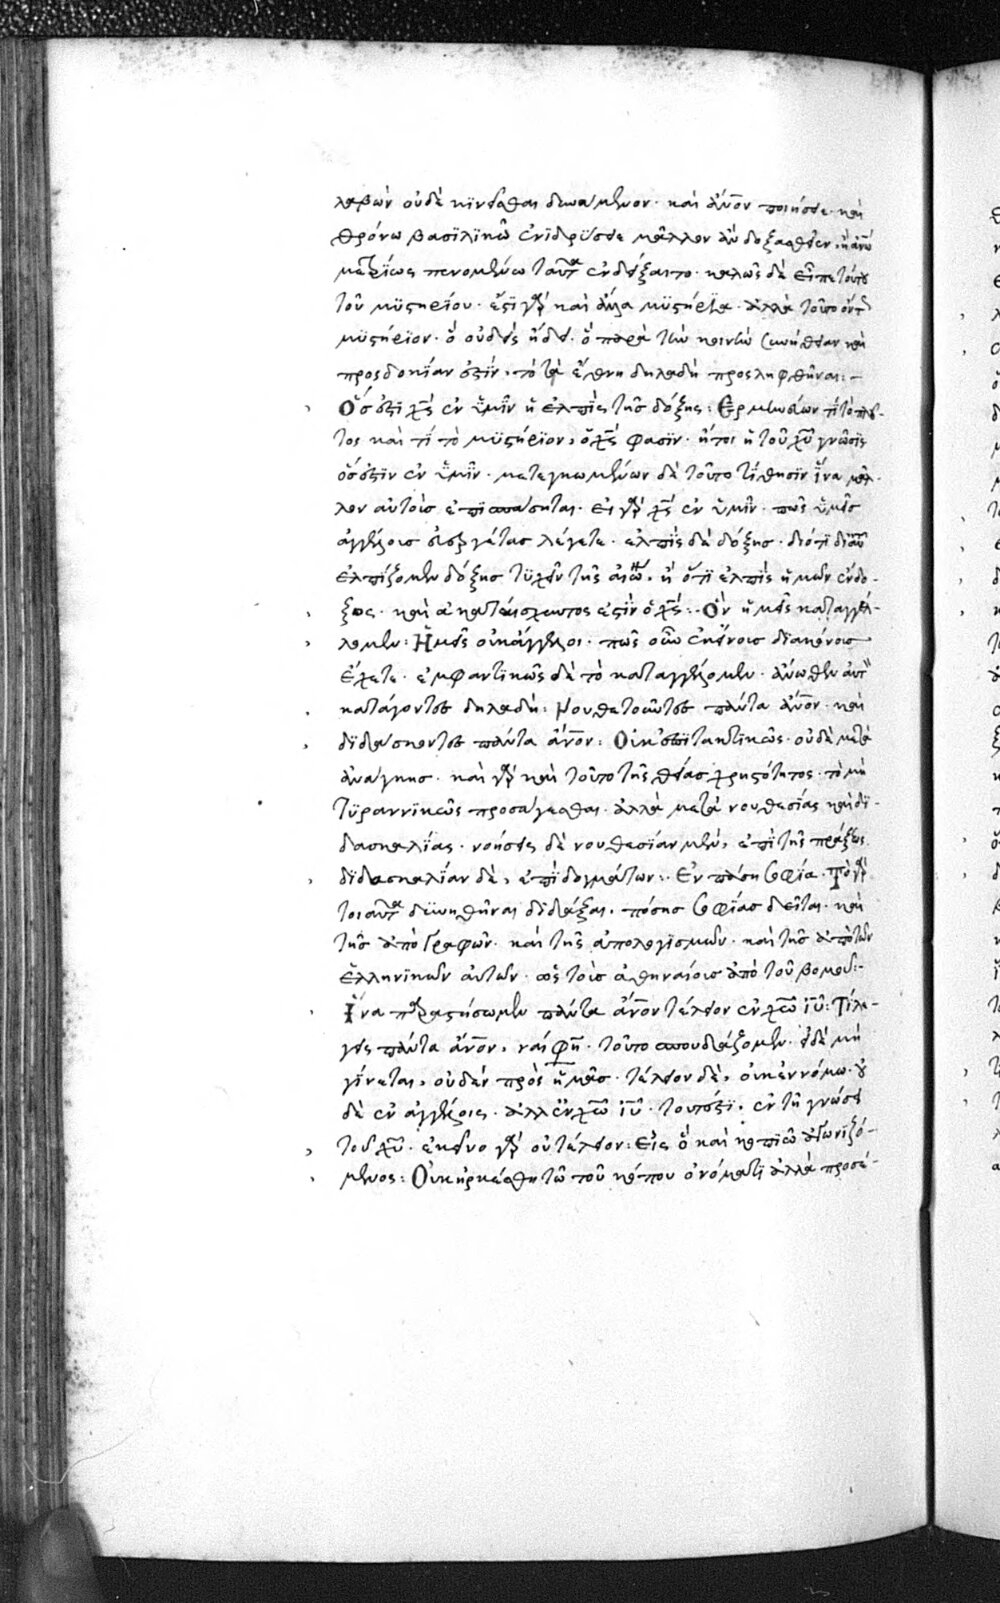 λαβὼν οὐδὲ κινεῖσθαι δυνάμενον· καὶ ἄνον ποιήσειε· καὶ
θρόνω βασιλικῶ ἐνιδρύσειε μᾶλλον ἂν δοξασθείη· ἢ
μετρίως πενομένω ταῦτα ἐνδείξαιτο· καλῶς δὲ εἶπε τούτου
τοῦ μυστηρίου· εἰσὶ γὰρ καὶ ἄλλα μυστήρια· ἀλλὰ τοῦτο ὄντως
μυστήριον· ὃ οὐδεὶς ἤδει· ὃ παρὰ τὴν κοινὴν καὶ
προσδοκίαν ἐστίν· τὸ τὰ ἔθνη δηλαδὴ προσληφθῆναι:-
Ὅς ἐστι χς ἐν ὑμῖν ἡ ἐλπὶς τῆς δόξης: Ἑρμηνεύων τί τὸ πλοῦ-
τος καὶ τί τὸ μυστήριον, ὁ χς φασίν· ἤτοι ἡ τοῦ χυ γνῶσις
ὅς ἐστιν ἐν ὑμῖν· κατεγνωμένων δὲ τοῦτο τίθησιν ἵνα μᾶλ-
λον αὐτοὺς ἐπισπάσηται· εἰ γὰρ χς ἐν ὑμῖν· πῶς ὑμεῖς
ἀγγέλοις λέγετε· ἐλπὶς δὲ δόξης· διότι δι' αὐτοῦ
ἐλπίζομεν δόξης τυχεῖν τῆς αἰωνίου, ἢ ὅτι ἐλπὶς ἡμῶν ἔνδο-
ξος· καὶ ἀκαταίσχυντός ἐστιν ὁ χς:- Ὃν ἡμεῖς καταγγέλ-
λομεν: Ἡμεῖς οὐκ ἄγγελοι· πῶς οὖν ἐκείνοις διακόνοις
ἔχετε· ἐμφαντικῶς δὲ τὸ καταγγέλλομεν· ἄνωθεν αὐτὸν
κατάγοντες δηλαδή: Νουθετοῦντες πάντα ἄνον· καὶ
διδάσκοντες πάντα ἄνον: Οὐκ ἐπιτακτικῶς· οὐδὲ μετὰ
ἀνάγκης· καὶ γὰρ καὶ τοῦτο τῆς θείας χρηστότητος· τὸ μὴ
τυραννικῶς προσάγεσθαι· ἀλλὰ μετὰ νουθεσίας καὶ δι-
δασκαλίας· νοήσεις δὲ νουθεσίαν μέν, ἐπὶ τῆς πράξεως
διδασκαλίαν δὲ, ἐπὶ δογμάτων:· Ἐν πάσῃ σοφία· Τὸ γὰρ
τοιαῦτα δυνηθῆναι διδάξαι, πόσης σοφίας δεῖται· καὶ
τῆς ἀπὸ γραφῶν· καὶ τῆς ἀπὸ λογισμῶν· καὶ τῆς ἀπὸ τῶν
ἑλληνικῶν αὐτῶν· ὡς τοῖς ἀθηναίοις ἀπὸ τοῦ βωμοῦ:-
Ἵνα παραστήσωμεν πάντα ἄνον τέλειον ἐν χω ιυ: Τί λέ-
γεις πάντα ἄνον, ναί φησι· τοῦτο σπουδάζομεν· εἰ δὲ μὴ
γίνεται, οὐδὲν πρὸς ἡμᾶς· τέλειον δὲ, οὐκ ἐν νόμω· οὐ
δὲ ἐν ἀγγέλοις· ἀλλ' ἐν χω ιυ· τουτέστιν, ἐν τῇ γνώσει
τοῦ χυ· ἐκεῖνο γὰρ οὐ τέλειον: Εἰς ὃ καὶ κοπιῶ ἀγωνιζό-
μενος: Οὐκ ἠρκέσθη τῶ τοῦ κόπου ὀνόματι ἀλλὰ προσέ-